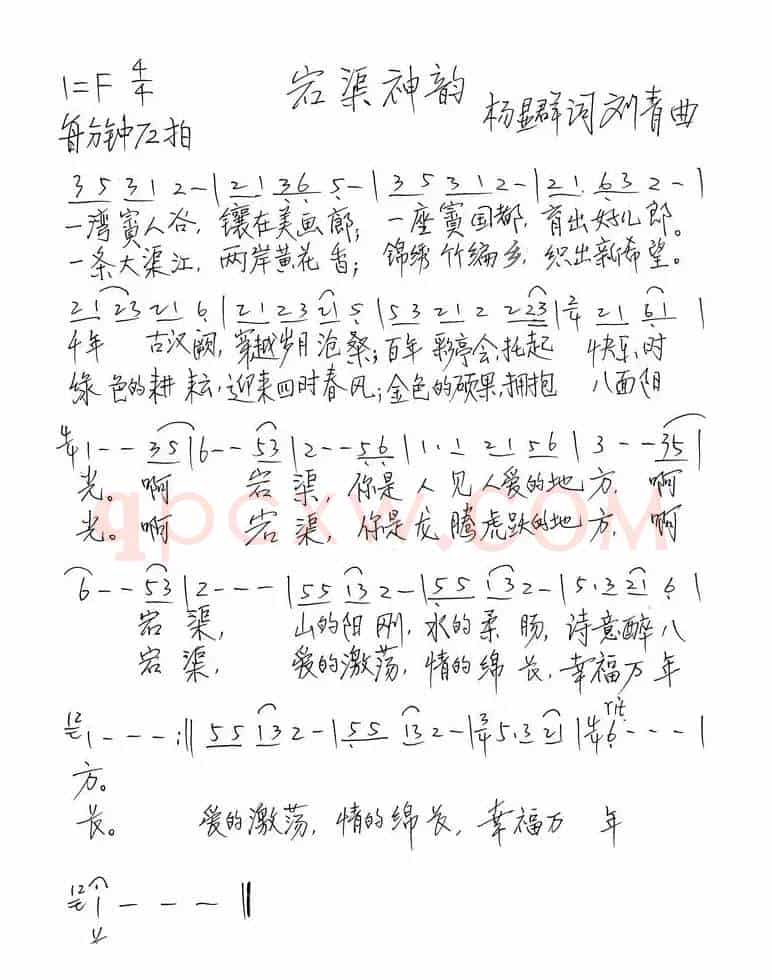 1=F 4/4 宕渠神韵
每分钟72拍 杨显群词 刘青曲
3 5 3 1 2 - | 2 1 3 6 5 - | 3 5 3 1 2 - | 2 1. 6 3 2 - |
一湾賨人谷, 镶在美画廊; 一座賨国都, 育出好儿郎。
一条大渠江, 两岸黄花香; 锦绣竹编乡, 织出新希望。
2 1 2 3 2 1 6 | 2 1 2 3 2 1 5 | 5 3 2 1 2 2 2 3 | 2/4 2 1 6 1 |
千年 古汉阙, 穿越岁月沧桑; 百年 彩亭会, 托起 快乐, 时
绿色的耕耘, 迎来四时春风; 金色的硕果, 拥抱 八面阳
4/4 1 - - 3 5 | 6 - - 5 3 | 2 - - 5 6 | 1. 1 2 1 5 6 | 3 - - 3 5 |
光。啊 宕渠, 你是人见人爱的地方, 啊
光。啊 宕渠, 你是龙腾虎跃的地方, 啊
qpcxw.com
6 - - 5 3 | 2 - - - | 5 5 1 3 2 - | 5 5 1 3 2 - | 5. 3 2 1 6 |
宕渠, 山的阳刚, 水的柔肠, 诗意醉八
宕渠, 爱的激荡, 情的绵长, 幸福万年
12 1 - - - :|| 5 5 1 3 2 - | 5 5 1 3 2 - | 3/4 5. 3 2 1 | 4/4 6 - - - |
rit
方。
长。 爱的激荡, 情的绵长, 幸福万 年
12 1 - - - ||